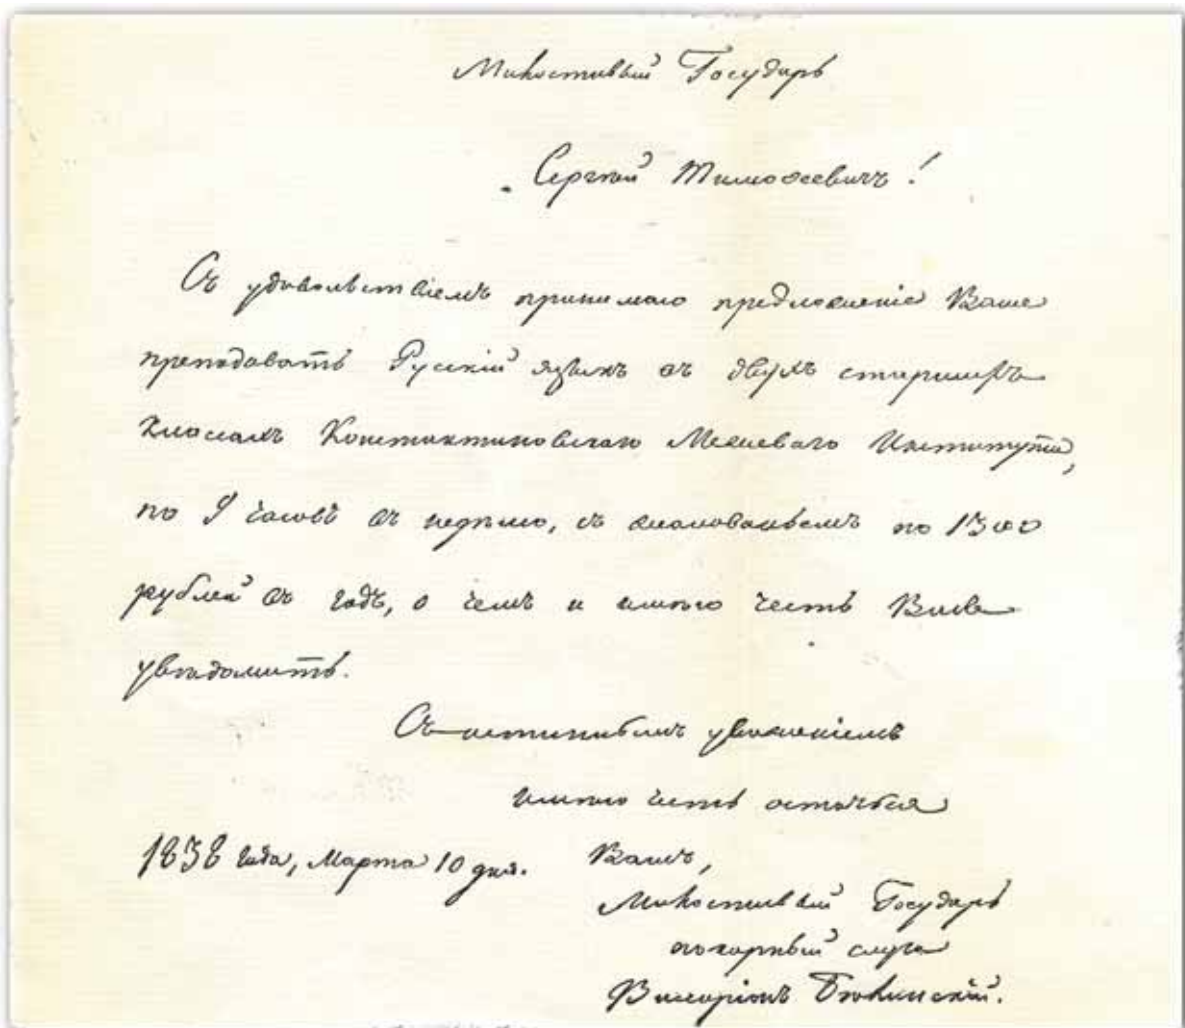 Милостивый Государь
Сергѣй Тимофеевичъ!
Съ удовольствіемъ принимаю предложеніе Ваше
преподавать Русскій языкъ въ двухъ старшихъ
классахъ Константиновскаго Межеваго Института,
по 9 часовъ въ недѣлю, съ жалованьемъ по 1300
рублей въ годъ, о чемъ и имѣю честь Васъ
увѣдомить.
Съ истиннымъ уваженіемъ
имѣю честь остаться
1838 года, Марта 10 дня.
Вашъ,
Милостивый Государь
покорный слуга
Виссаріонъ Бѣлинскій.